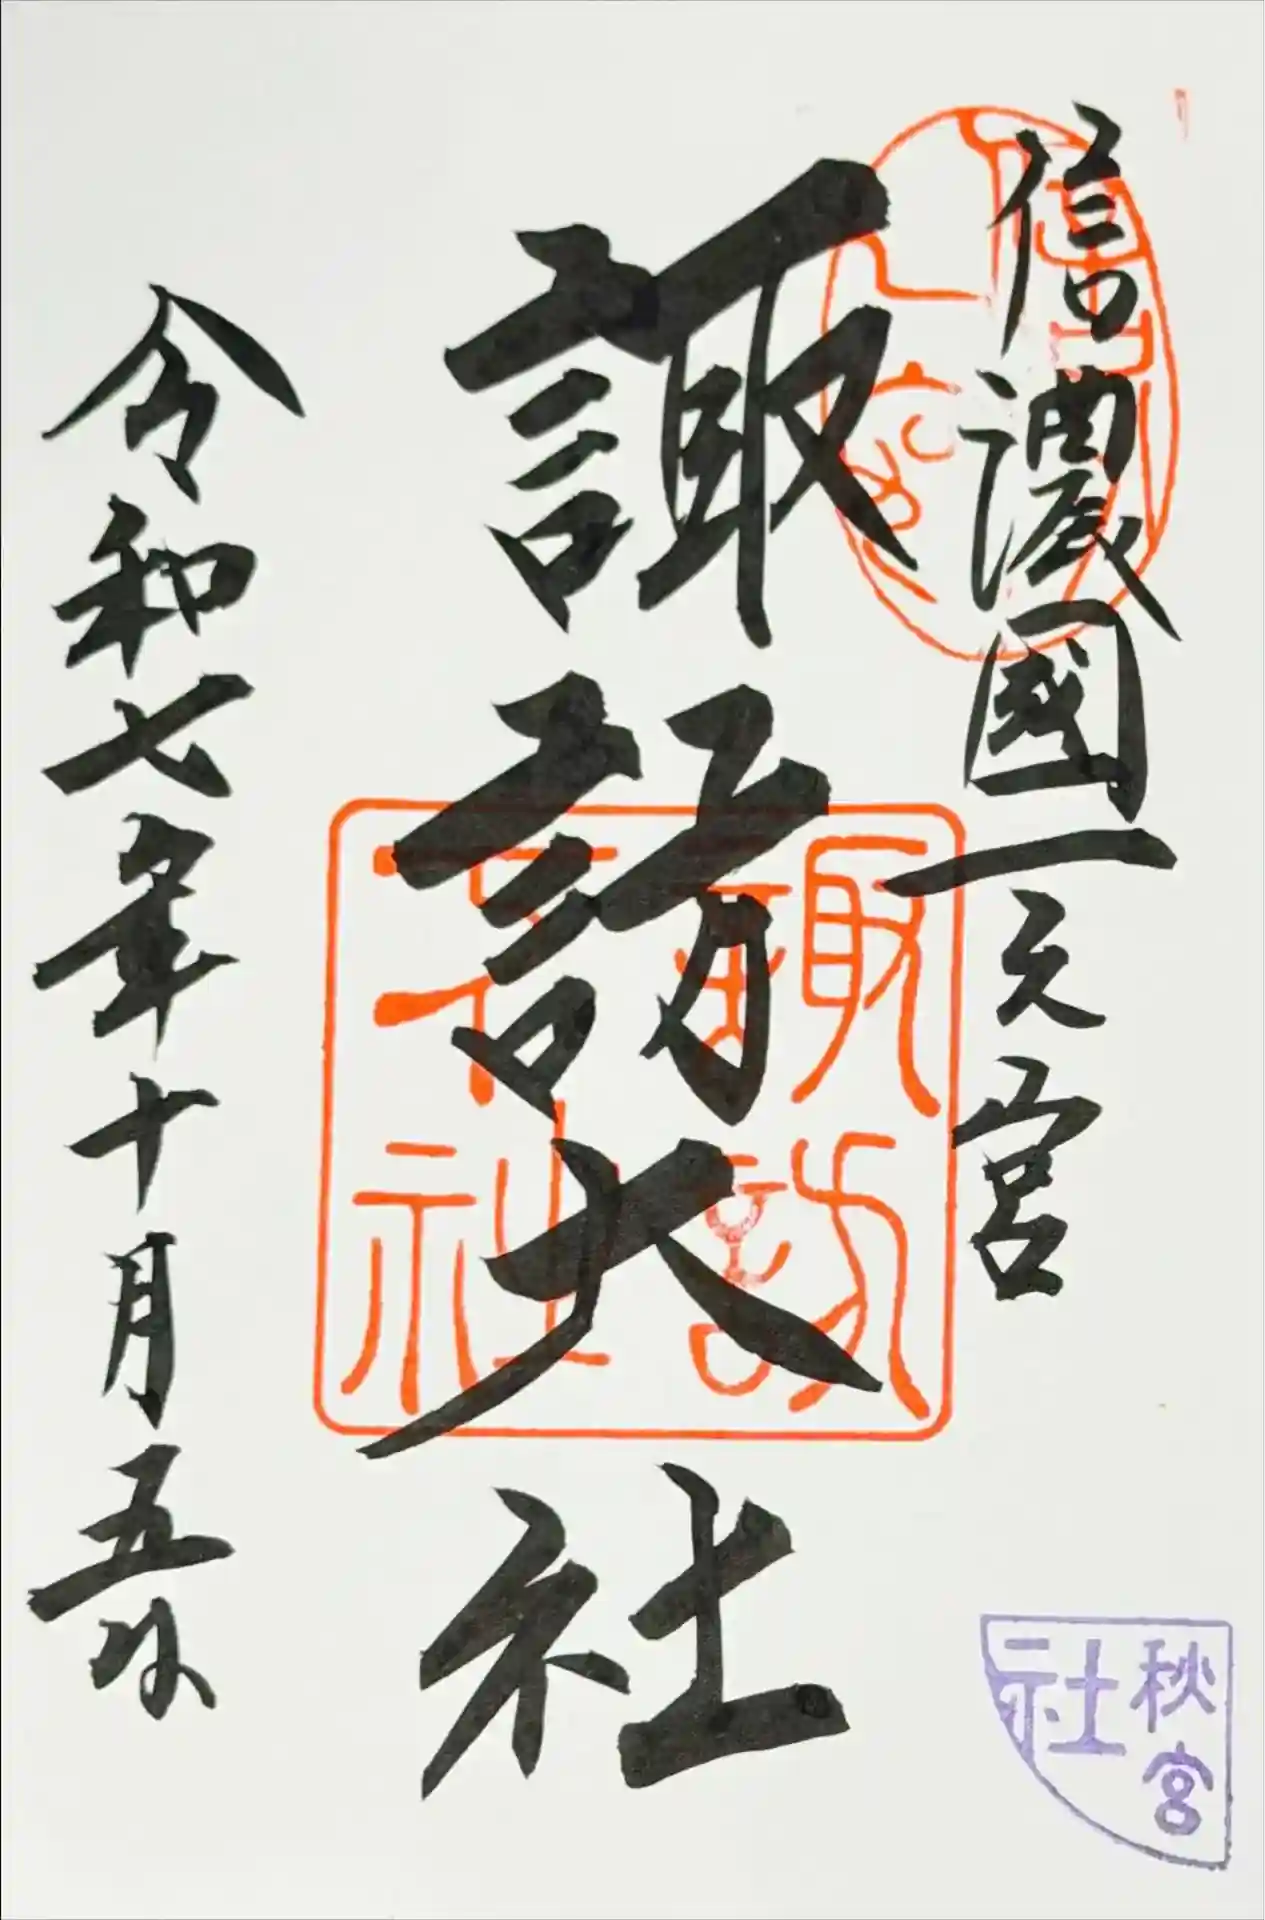 信濃國一之宮
諏訪大社
令和七年十月五日
諏訪
大社
秋宮
社